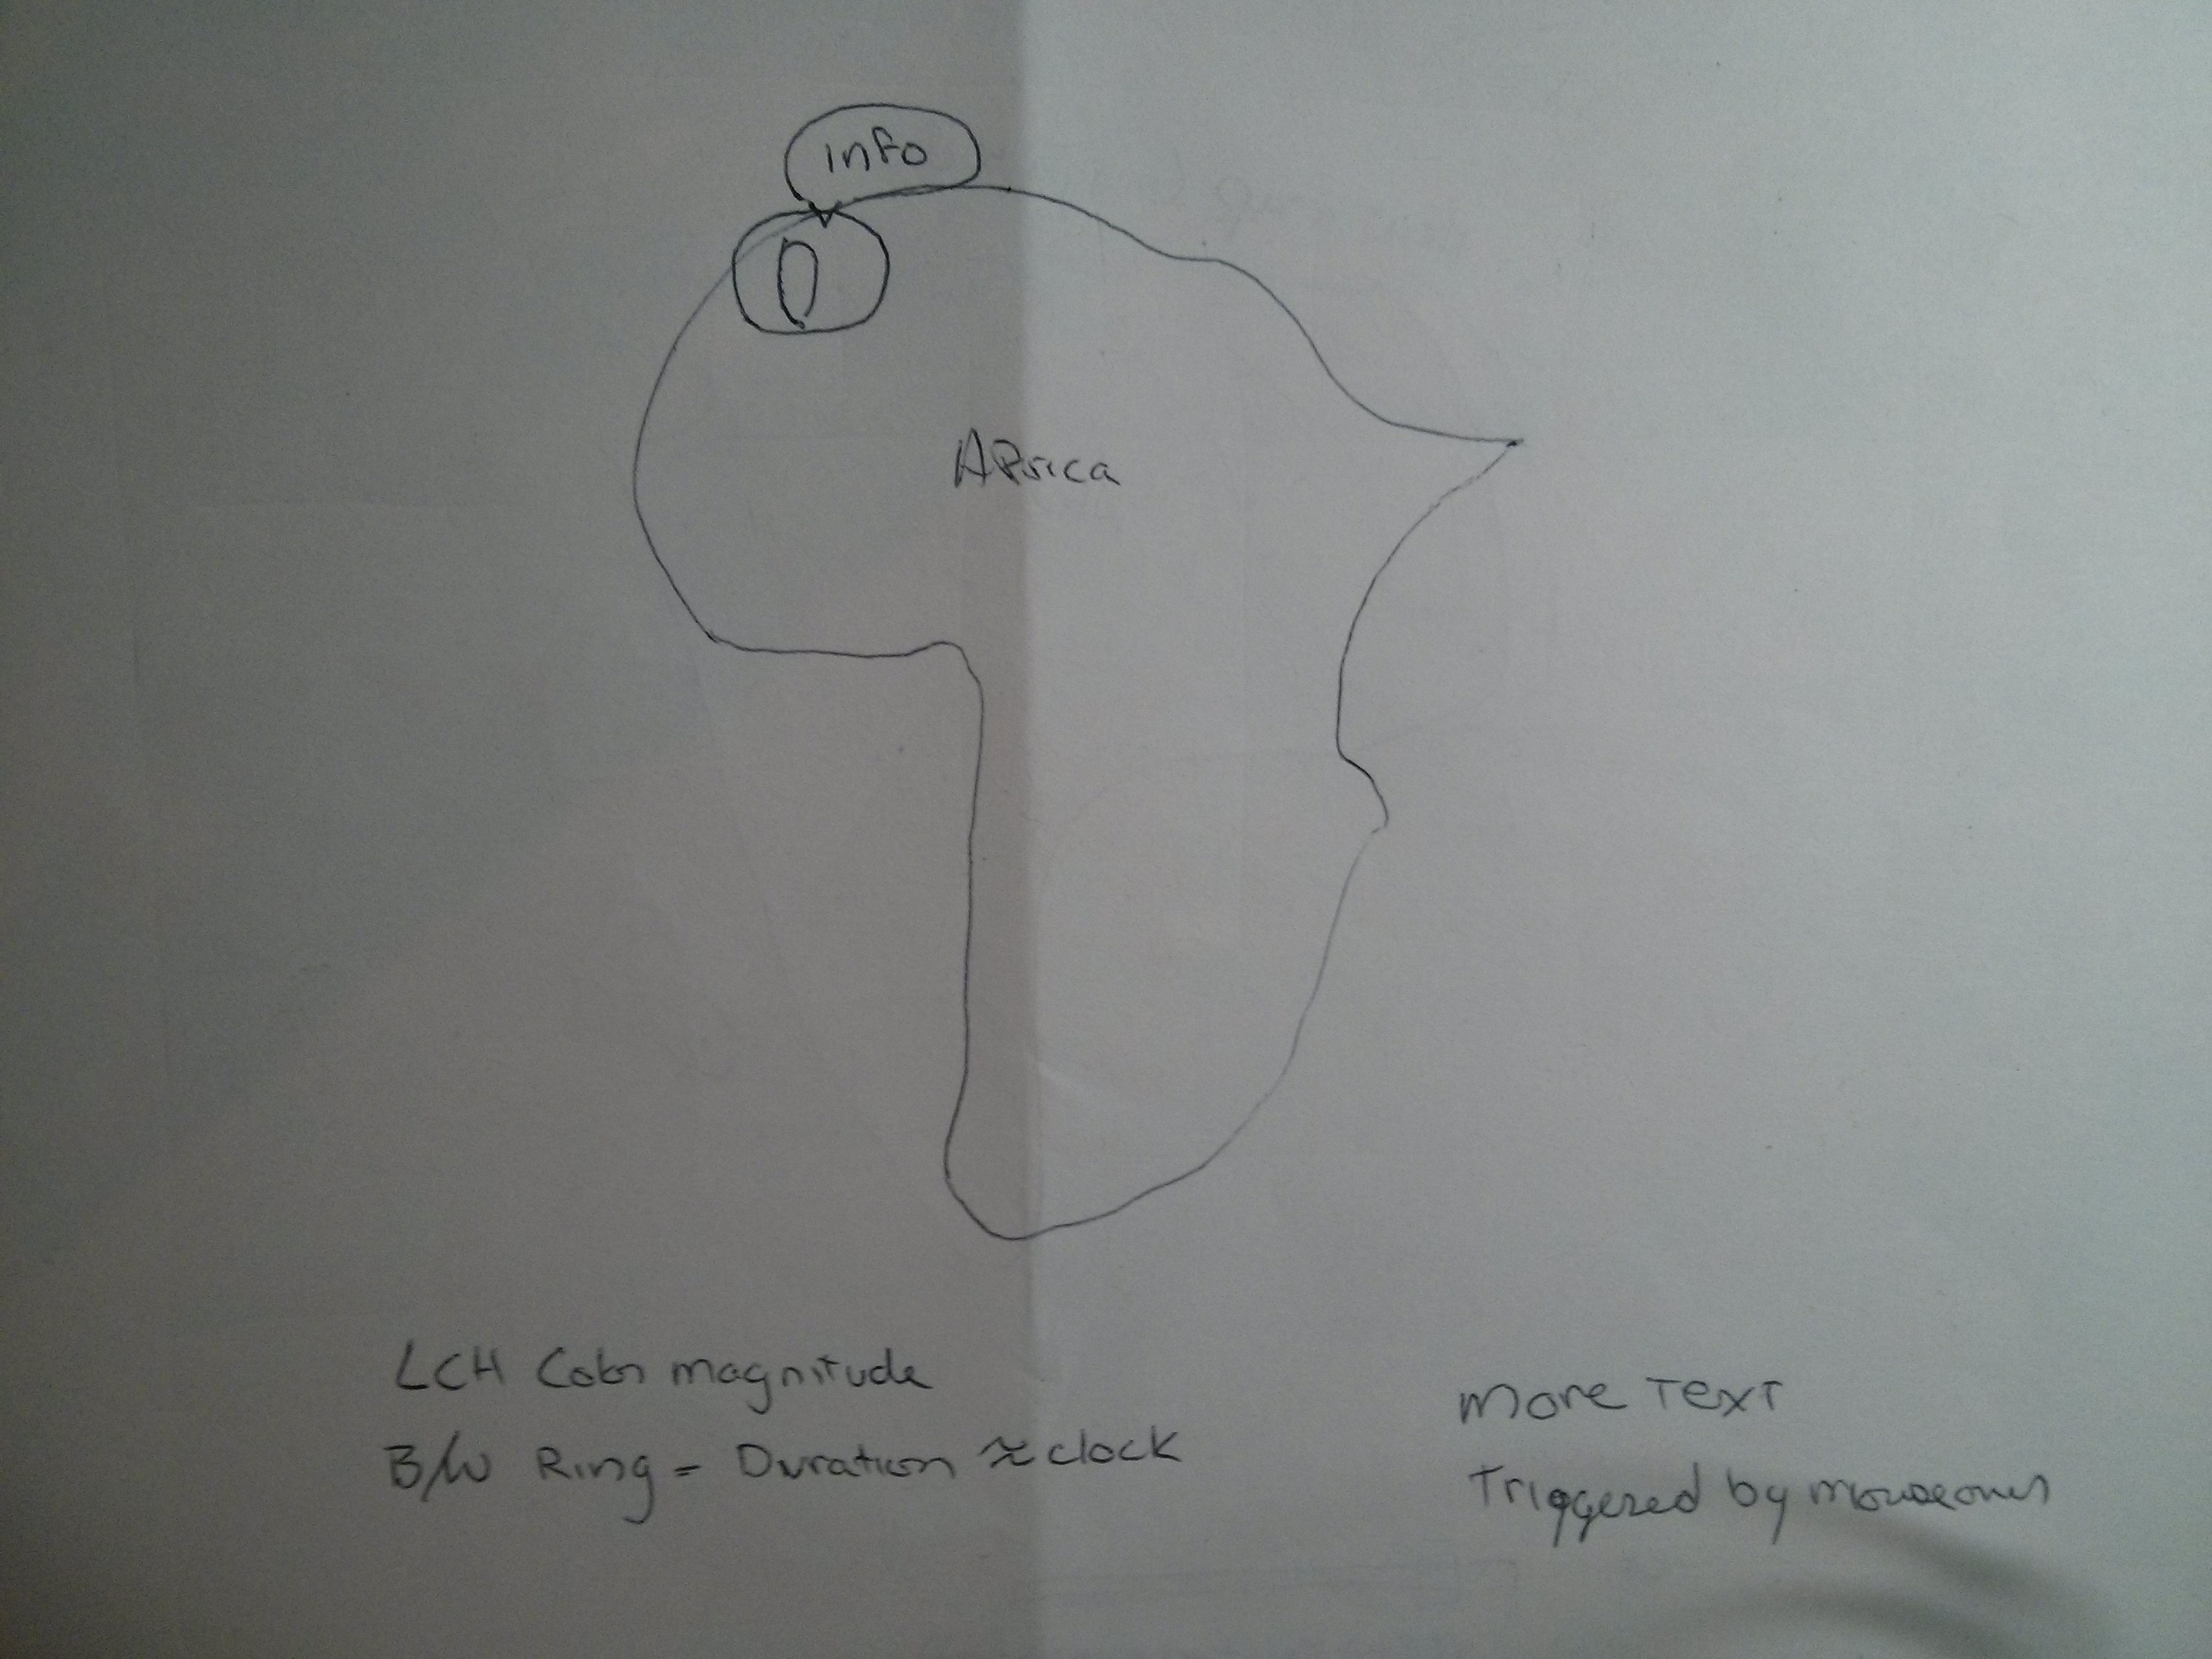 info
0
Africa
LCH Color magnitude
B/W Ring = Duration ≈ clock
More Text
Triggered by mouseover